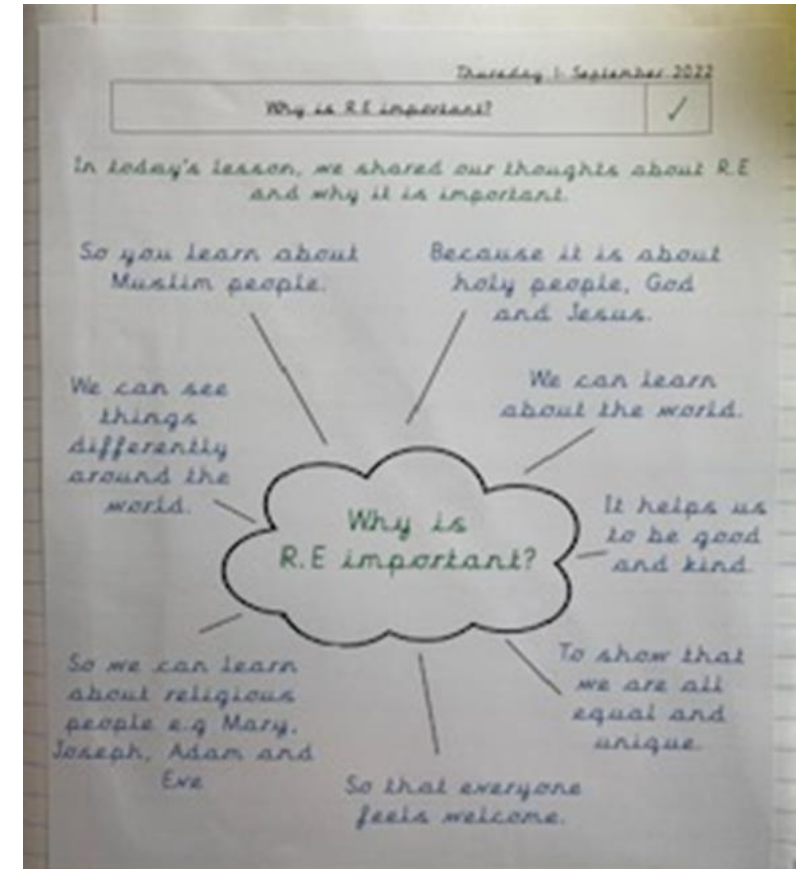 Thursday 1 September 2022
Why is R.E important?
In today's lesson, we shared our thoughts about R.E
and why it is important.
So you learn about
Muslim people.
Because it is about
holy people, God
and Jesus.
We can see
things
differently
around the
world.
We can learn
about the world.
Why is
R.E important?
It helps us
to be good
and kind
So we can learn
about religious
people e.g Mary,
Joseph, Adam and
Eve
To show that
we are all
equal and
unique.
So that everyone
feels welcome.